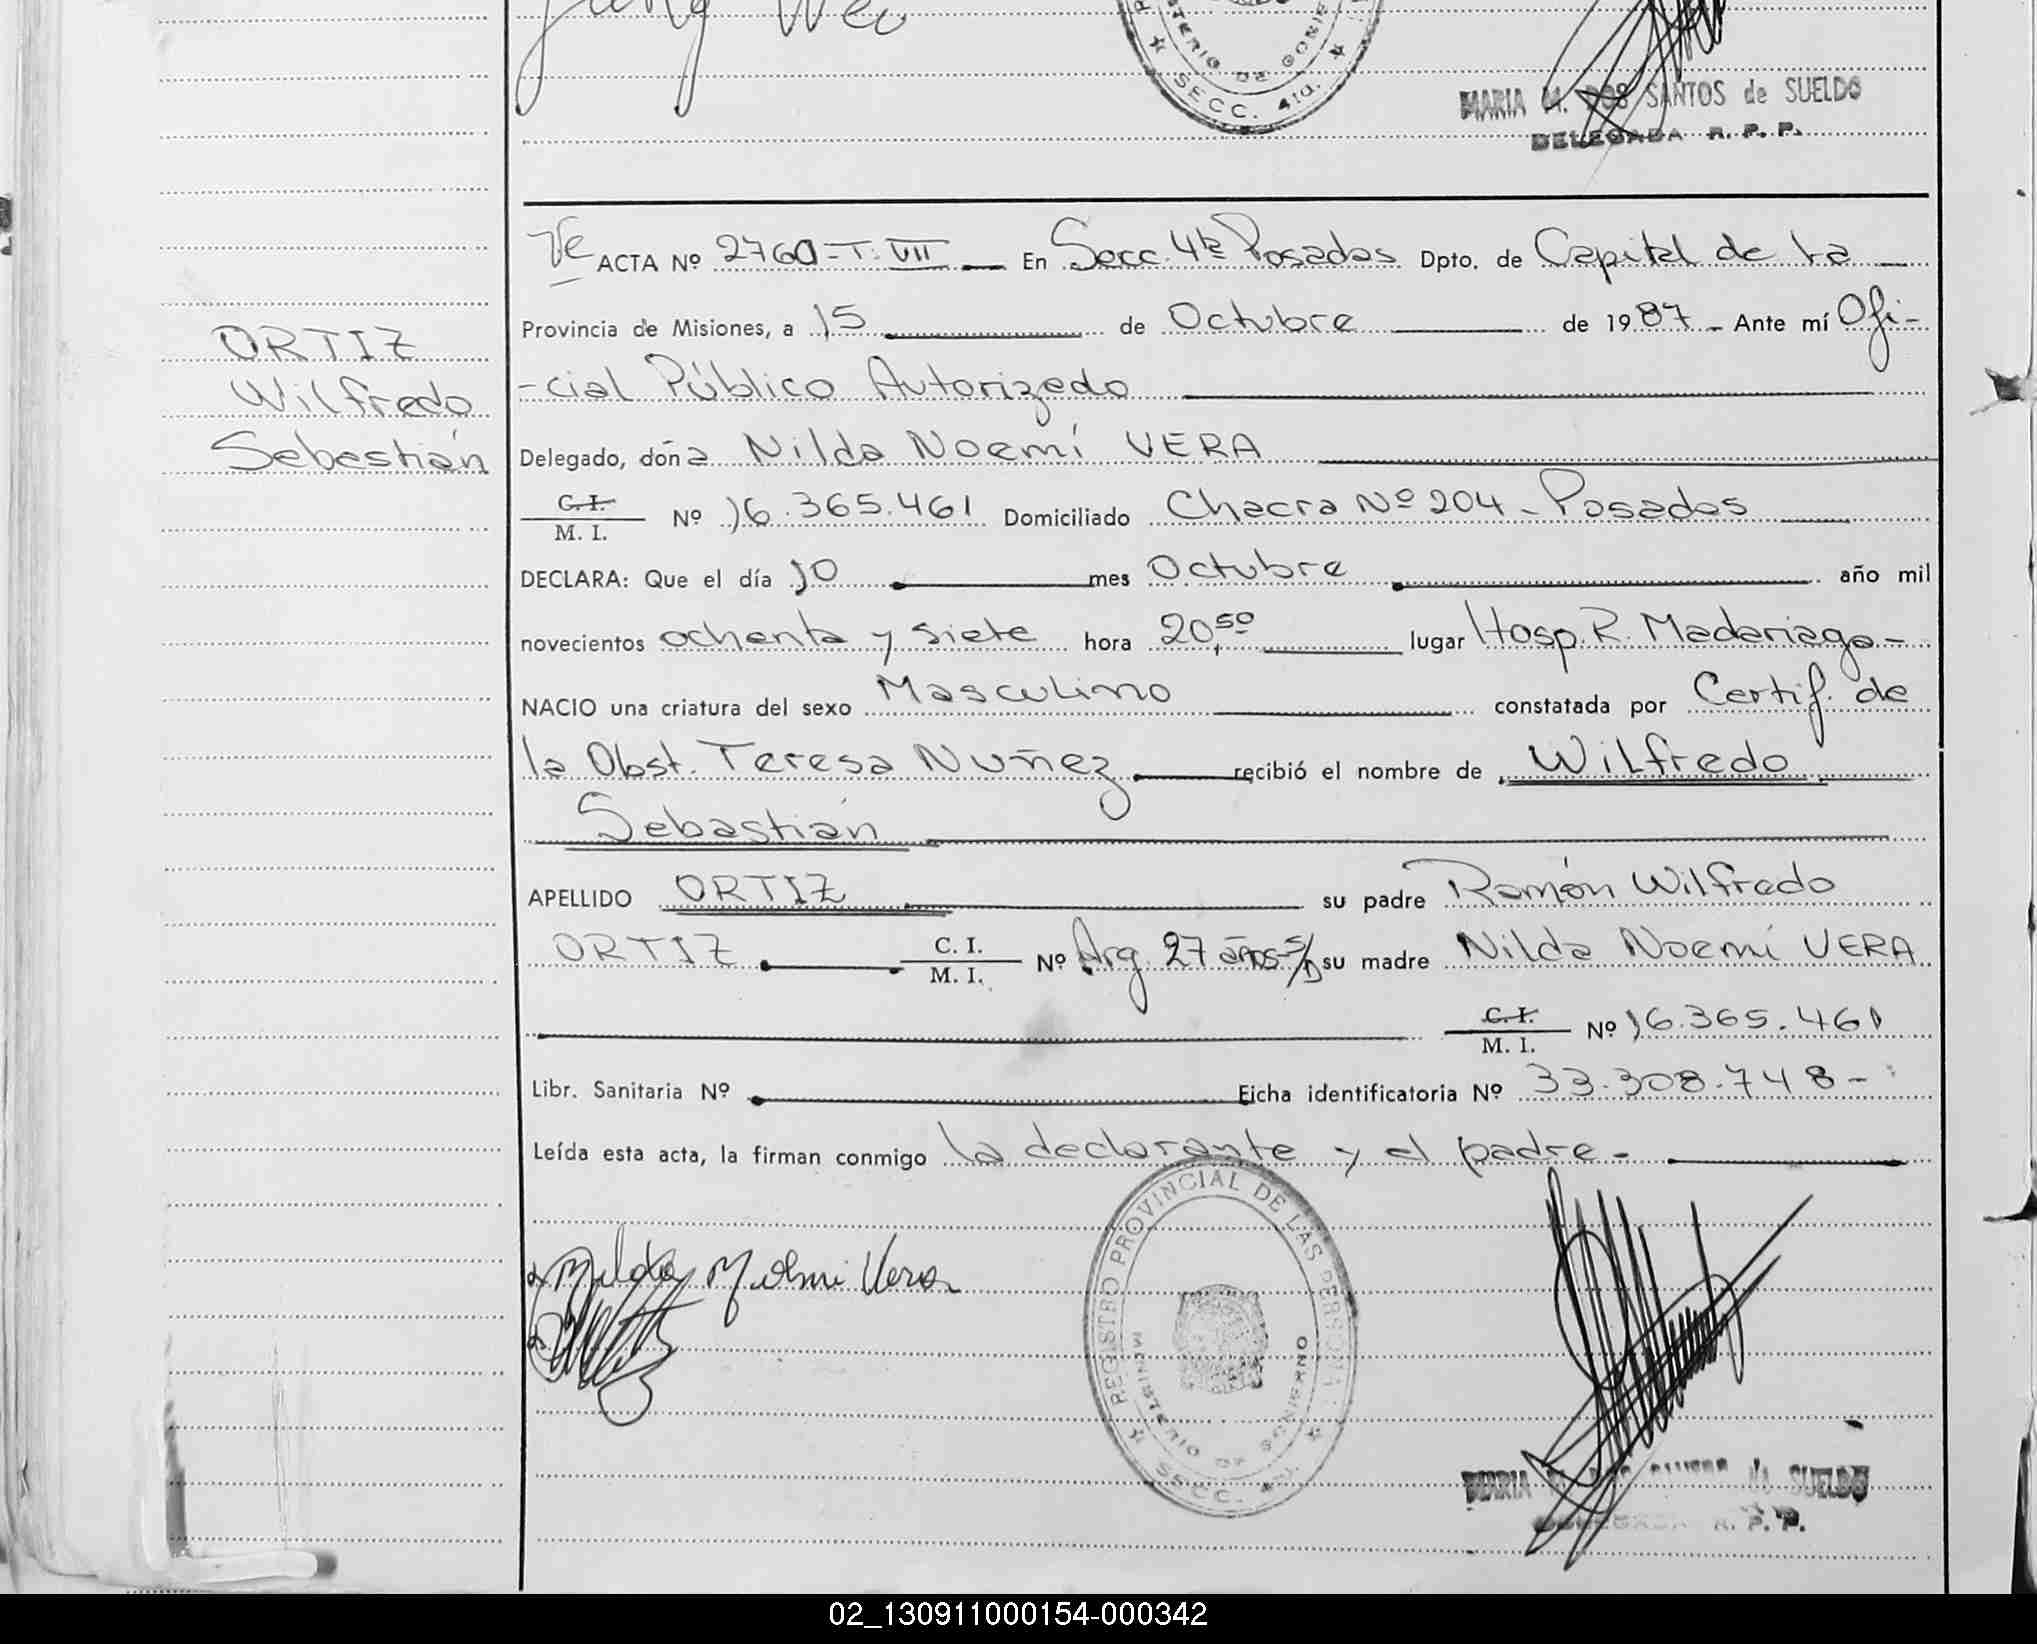 Jung Wei
MINISTERIO DE GOBIERNO
★ SECC. 4ta. ★
MARIA M. DOS SANTOS de SUELDO
DELEGADA R. P. P.
ACTA Nº 2760-T: VII En Secc. 4ta Posadas Dpto. de Capital de la
Provincia de Misiones, a 15 de Octubre de 1987 - Ante mí Ofi-
ORTIZ
Wilfredo
Sebastián
-cial Público Autorizado
Delegado, doña Nilda Noemí VERA
C. I. / M. I. Nº 16.365.461 Domiciliado Chacra Nº 204 - Posadas
DECLARA: Que el día 10 mes Octubre año mil
novecientos ochenta y siete hora 20,50 lugar Hosp. R. Madariaga -
NACIO una criatura del sexo Masculino constatada por Certif. de
la Obst. Teresa Nuñez recibió el nombre de Wilfredo
Sebastián
APELLIDO ORTIZ su padre Ramón Wilfredo
ORTIZ C. I. / M. I. Nº Arg. 27 años - S/D su madre Nilda Noemí VERA
C. I. / M. I. Nº 16.365.461
Libr. Sanitaria Nº Ficha identificatoria Nº 33.308.748 -
Leída esta acta, la firman conmigo la declarante y el padre -
Nilda Noemi Vera
REGISTRO PROVINCIAL DE LAS PERSONAS
MINISTERIO DE GOBIERNO
★ SECC. 4ta. ★
MARIA M. DOS SANTOS de SUELDO
DELEGADA R. P. P.
02_130911000154-000342